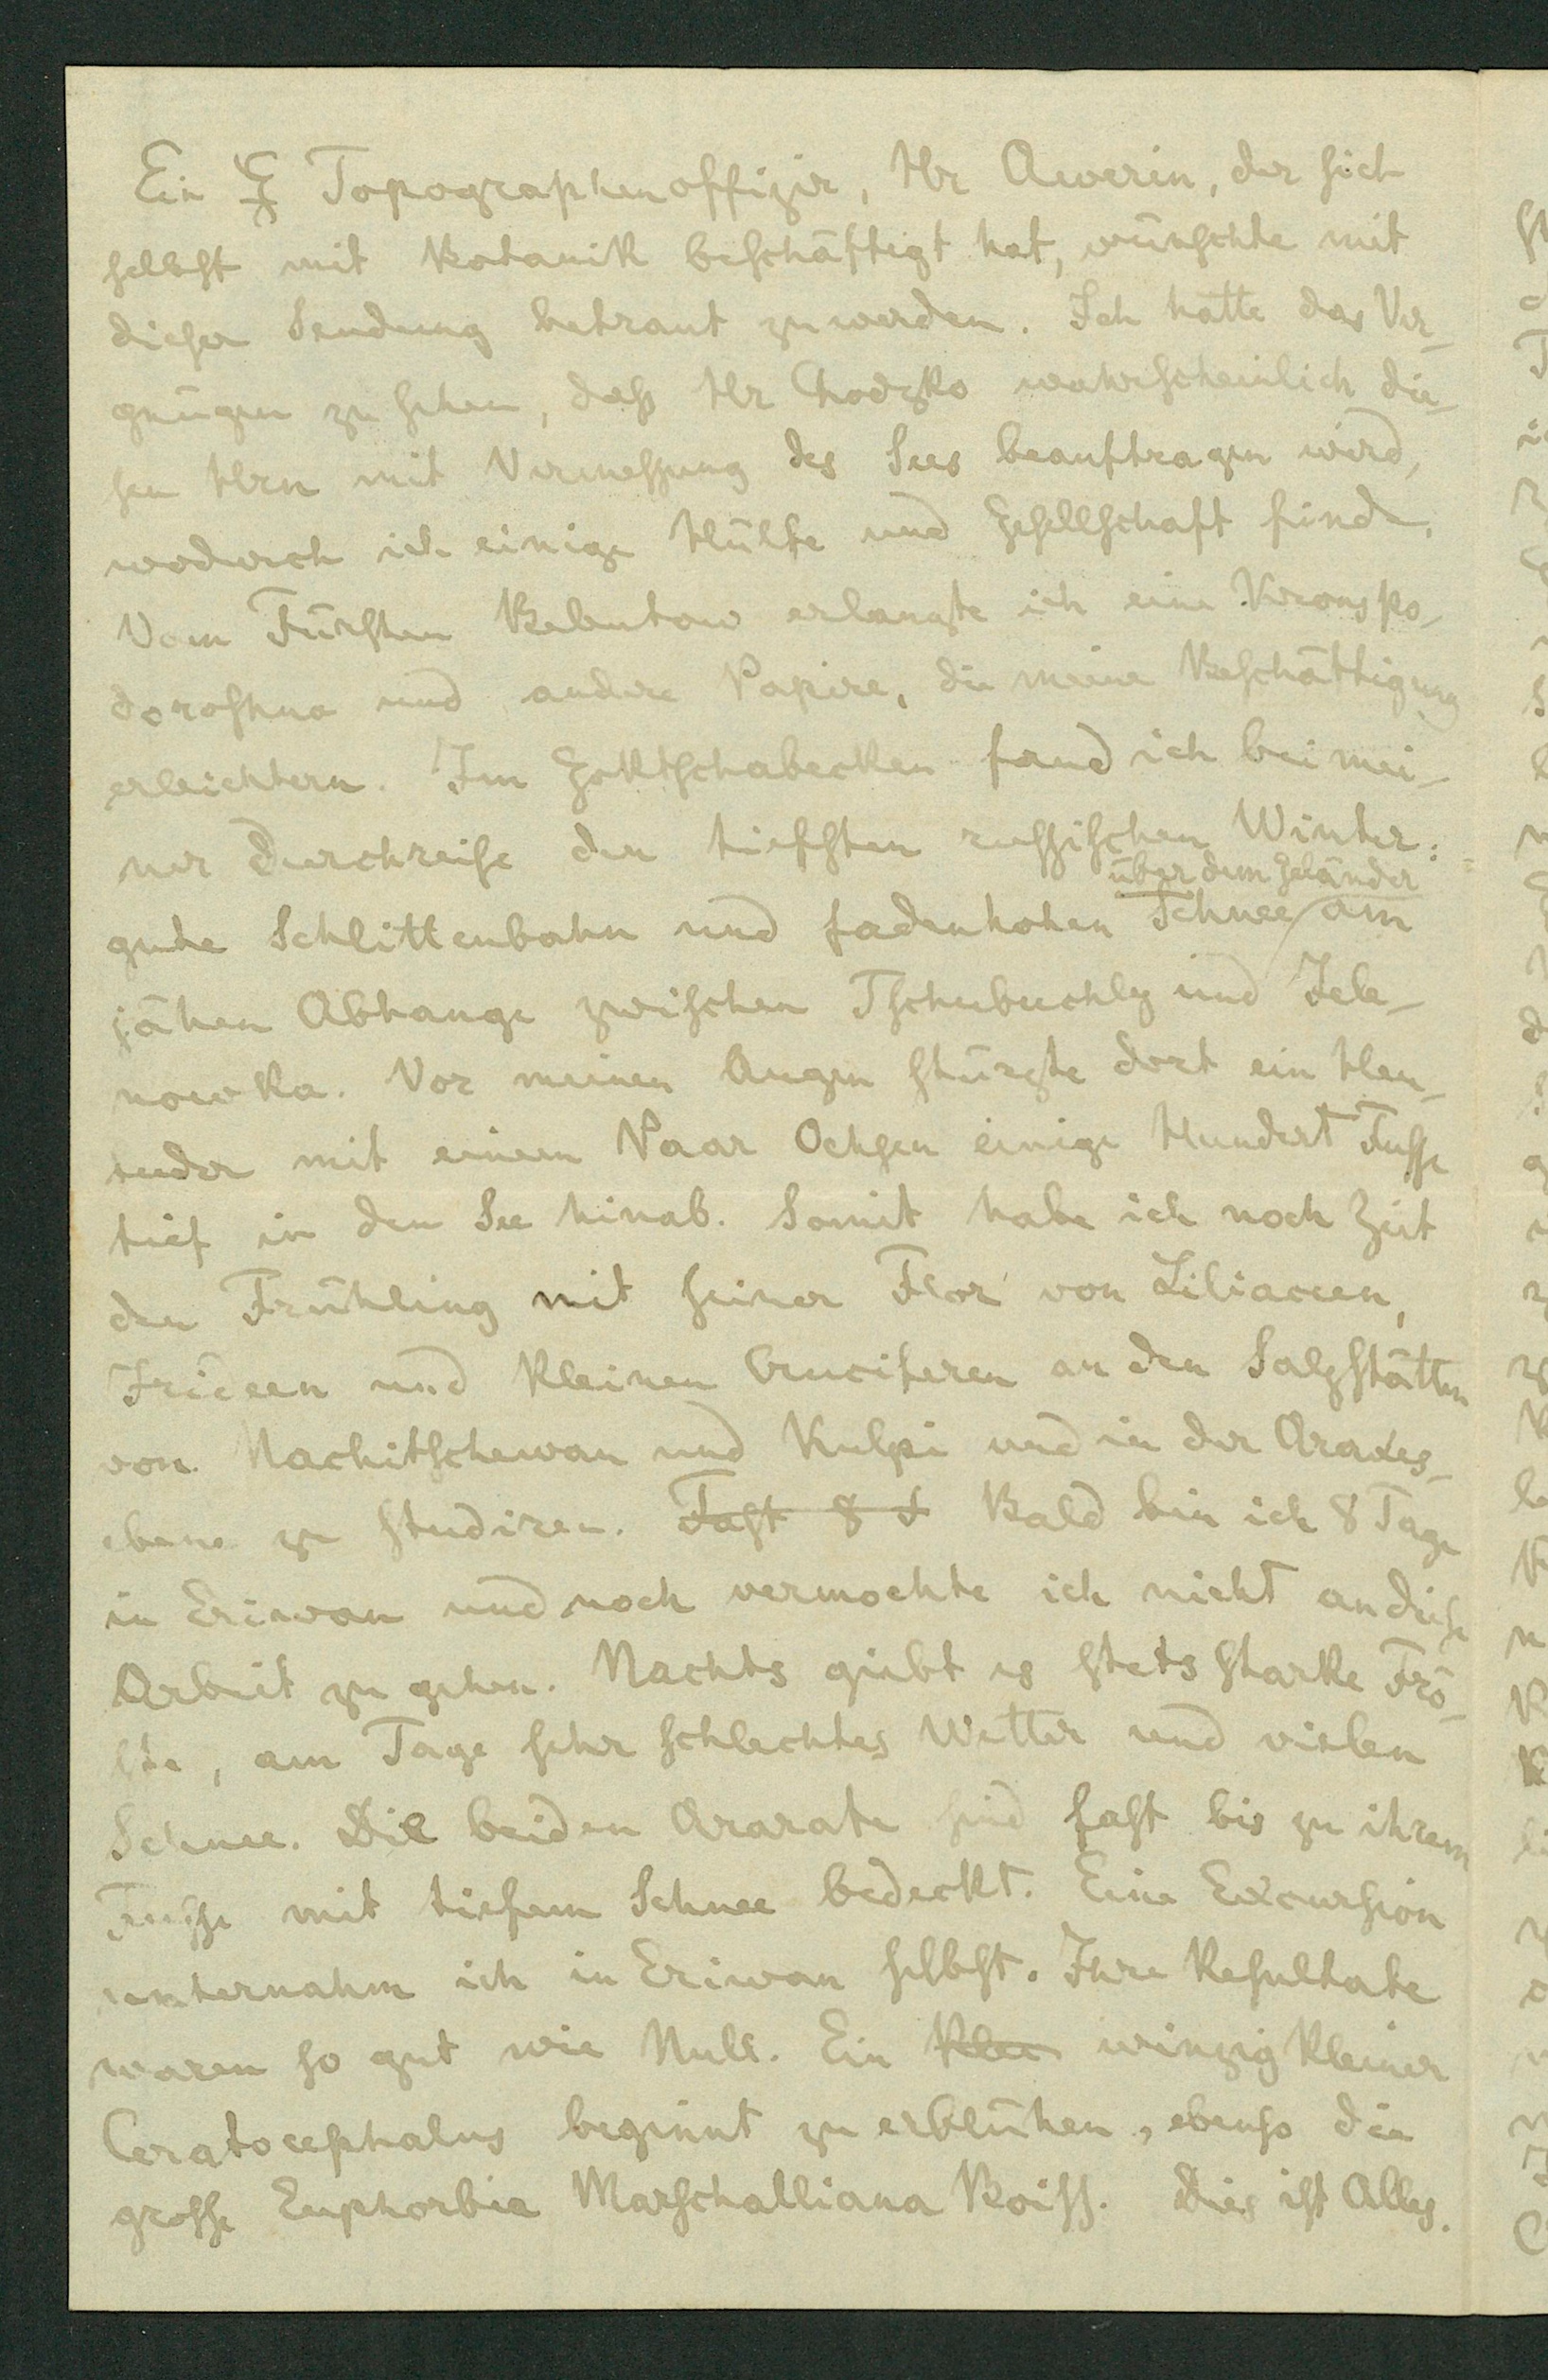 Ein Topographenoffizir, Hr Awerin, der sich
selbst mit Botanik beschäftigt hat, wünschte mit
dieser Sendung betraut zu werden. Ich hatte das Ver-
gnügen zu sehen, daß Hr Chodzko wahrscheinlich die-
sen Hrn mit Vermessung des Sees beauftragen wird,
wodurch ich einige Hülfe und Gesellschaft finde.
Vom Fürsten Bebutow erlangte ich eine Kronspo-
doroshna und andere Papire, die meine Beschäftigung
erleichtern. Im Goktschabecken fand ich bei mei-
ner Durchreise den tiefsten russischen Winter:
über dem Geländer
gute Schlittenbahn und fadenhohen Schnee am
jähen Abhange zwischen Tschubuchly und Jele-
nowka. Vor meinen Augen stürzte dort ein Heu-
fuder mit einem Paar Ochsen einige Hundert Fusse
tief in den See hinab. Somit habe ich noch Zeit
den Frühling mit seiner Flor von Liliaceen,
Irideen und kleinen Cruciferen an den Salzstätten
von Nachitschewan und Kulpi und in der Araxes-
ebene zu studiren. Fast 8 t Bald bin ich 8 Tage
in Eriwan und noch vermochte ich nicht an diese
Arbeit zu gehen. Nachts giebt es stets starke Frö-
ste, am Tage sehr schlechtes Wetter und vielen
Schnee. Die beiden Ararate sind fast bis zu ihrem
Fusse mit tiefem Schnee bedeckt. Eine Excursion
unternahm ich in Eriwan selbst. Ihre Resultate
waren so gut wie Null. Ein klei winzig kleiner
Ceratocephalus beginnt zu erblühen, ebenso die
grosse Euphorbia Marschalliana Boiss. Dies ist Alles.